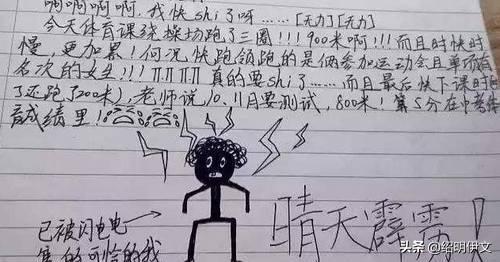 啊啊啊啊,我快shi了呀……[无力][无力]
今天体育课绕操场跑了三圈!!!900米啊!!!而且时快时
慢,更加累!何况,快跑领跑的是俩参加运动会且单项有
名次的女生!!! 真的要shi了……而且最后快下课时
了还跑了200米),老师说,10、11月要测试,800米!算5分在中考
成绩里!
已被闪电电
焦的可怜的我
晴天霹雳!
头条@绍明伊文